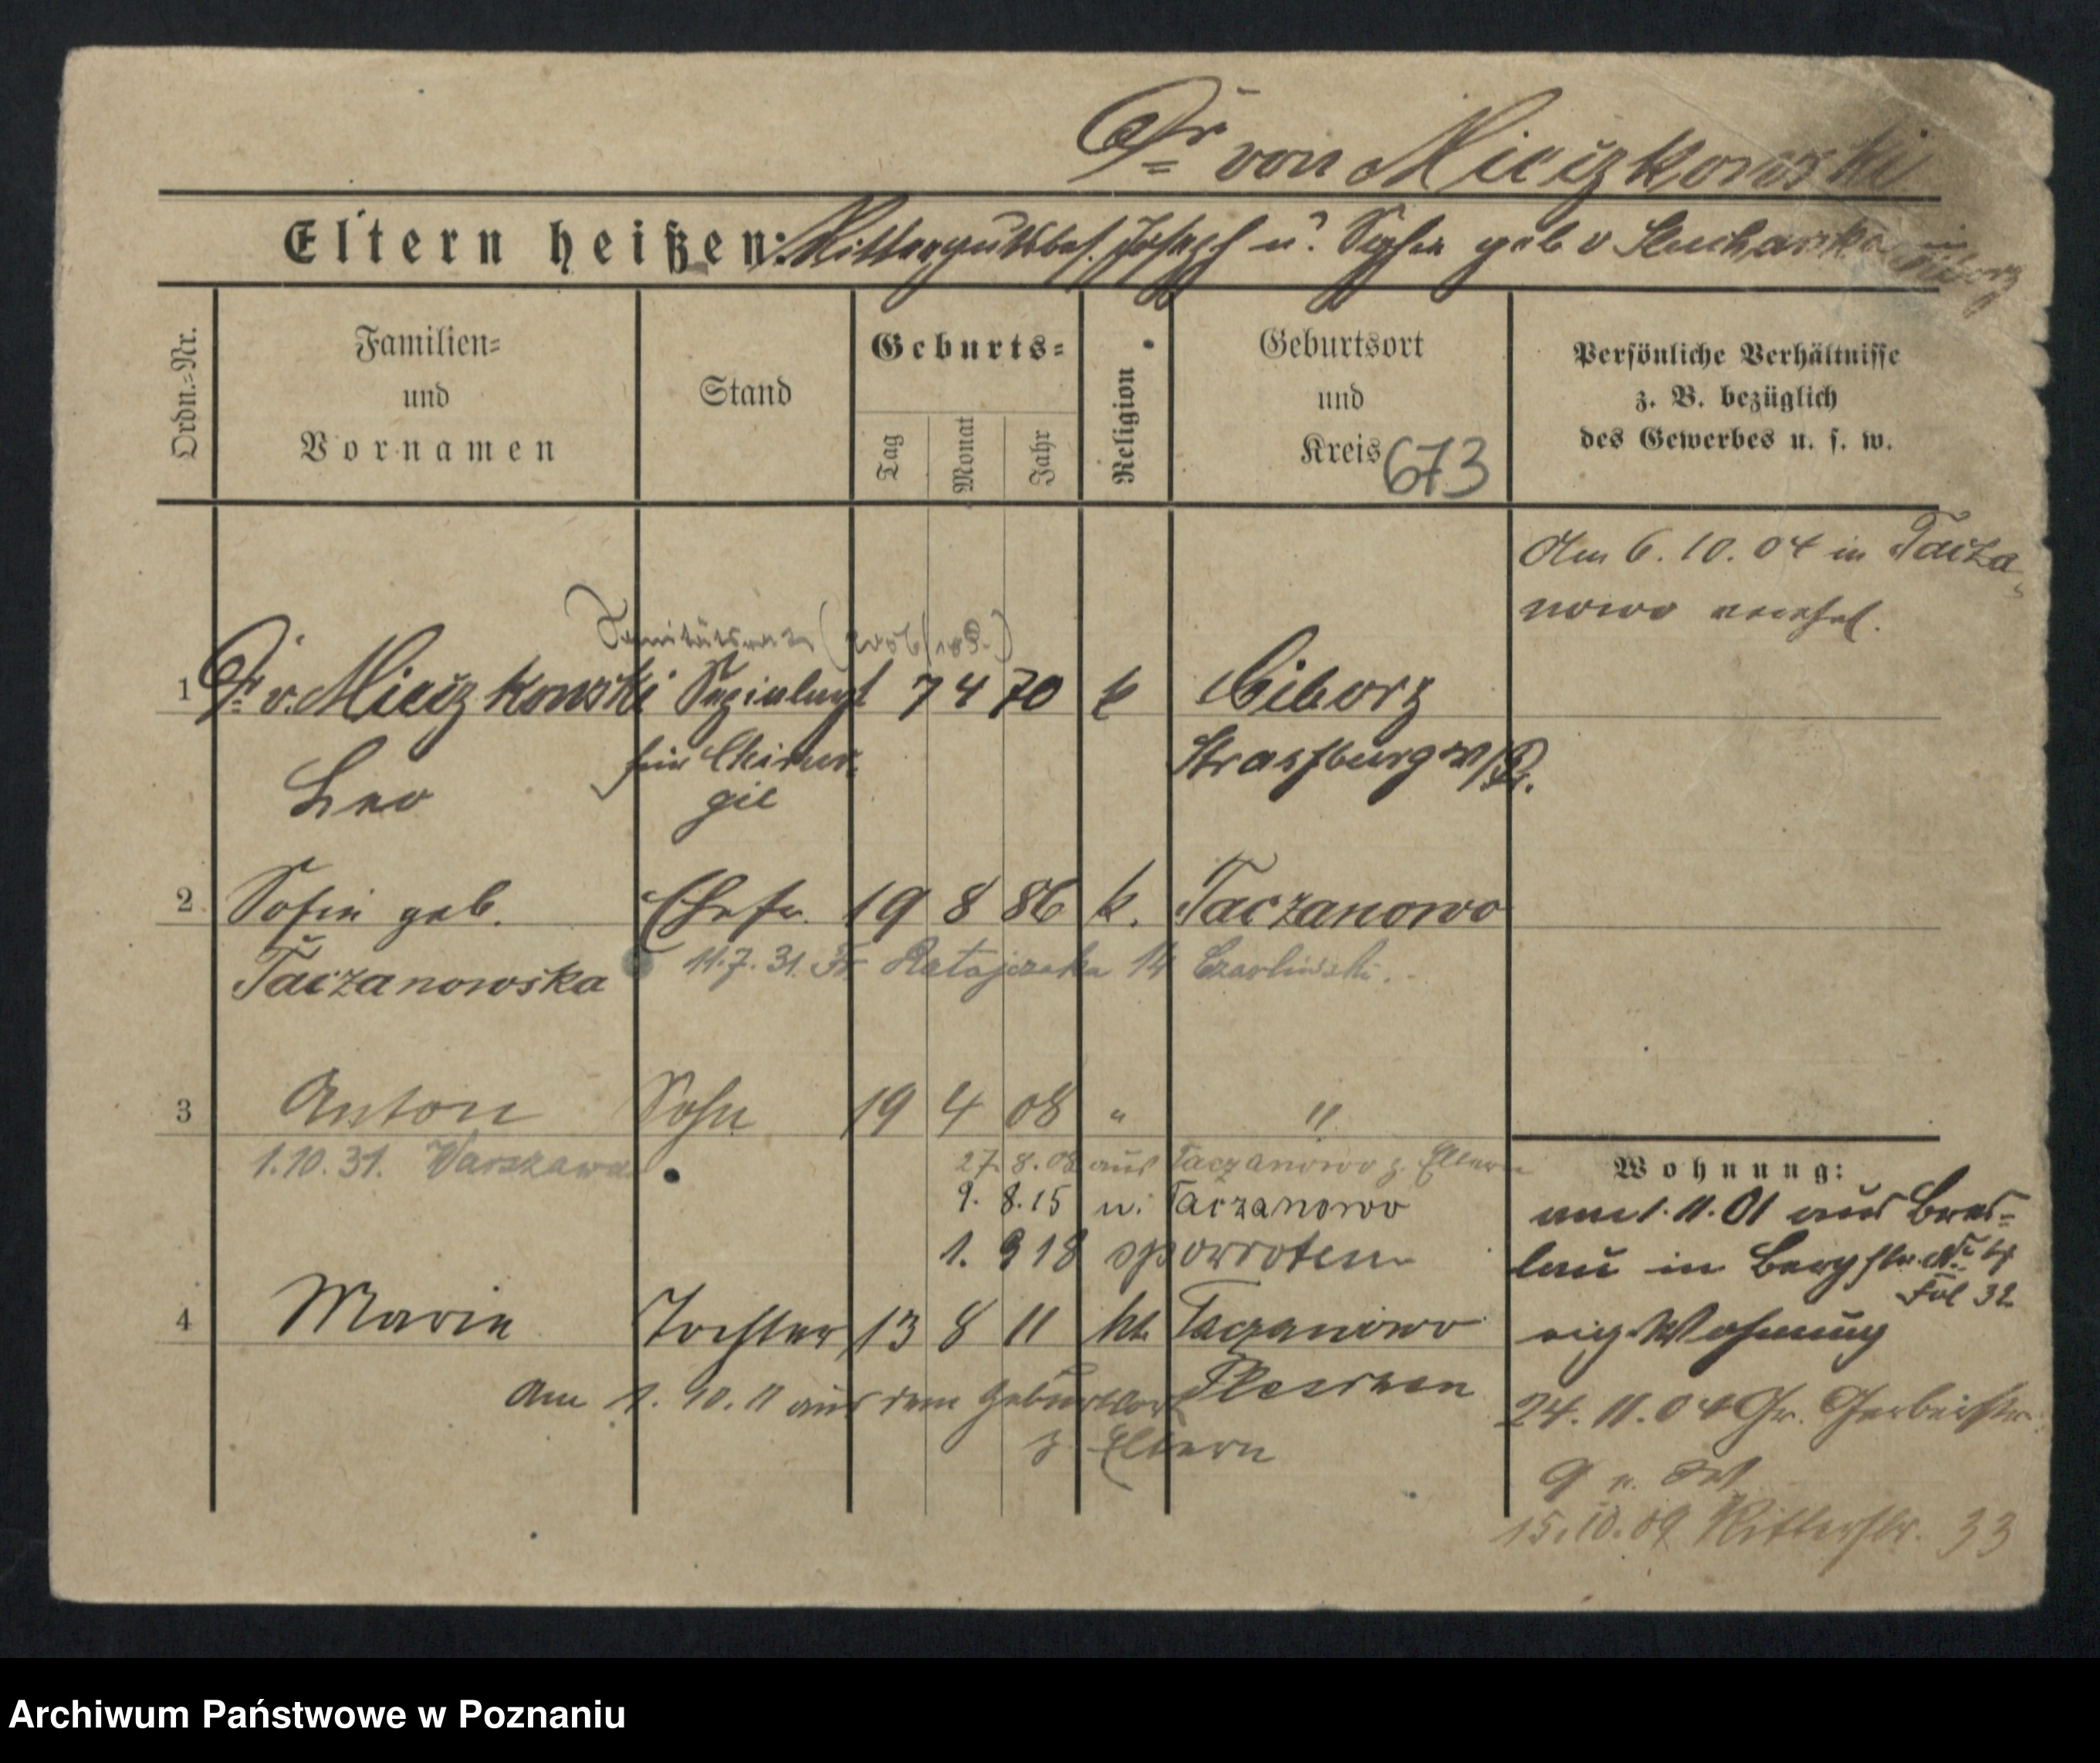 Dr von Mieczkowski
Eltern heißen: Rittergutsbes. Joseph u. Sofia geb v
Ordn.-Nr.
Familien-
und
Vornamen
Stand
Geburts-
Tag
Monat
Jahr
Religion
Geburtsort
und
Kreis 673
Persönliche Verhältnisse
z. B. bezüglich
des Gewerbes u. s. w.
Am 6. 10. 04 in Tacza
nowo verehel.
Sanitätsrat
1 Dr v. Mieczkowski Spezialarzt 7 4 70 k Ciborz
für Chirur- Strasburg W/Pr.
Leo gie
2 Sofia geb. Ehefr. 19 8 86 k. Taczanowo
Taczanowska 11.7.31. Fr Ratajczaka 14
3 Anton Sohn 19 4 08 " "
1.10.31. Warszawa 27. 8. 08 aus Taczanowo z. Eltern
9. 8. 15 n. Taczanowo
1. 9 18 spowrotem
4 Marie Tochter 13 8 11 kt. Taczanowo
Pleschen
Am 1. 10. 11 aus dem Geburtsort
z. Eltern
Wohnung:
am 1. 11. 01 aus Bres-
lau in Bergstr. No 4
Fol 32
eig. Wohnung
24. 11. 04 Gr. Gerberstr.
9 e. W
15. 10. 09 Ritterstr. 33
Archiwum Państwowe w Poznaniu